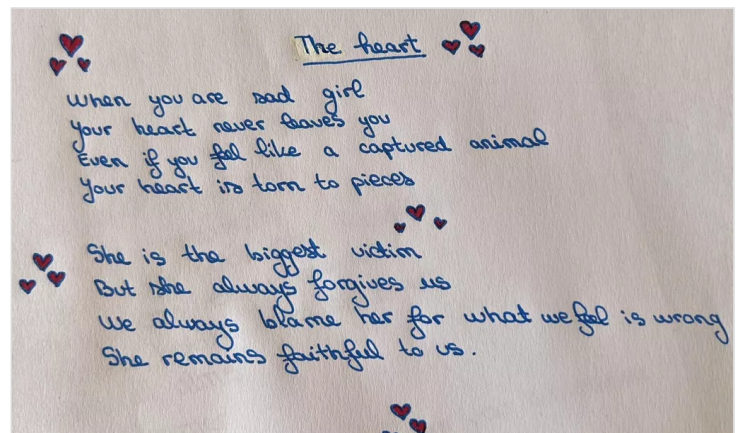 The heart
When you are sad girl
Your heart never leaves you
Even if you feel like a captured animal
Your heart is torn to pieces
She is the biggest victim
But she always forgives us
We always blame her for what we feel is wrong
She remains faithful to us.